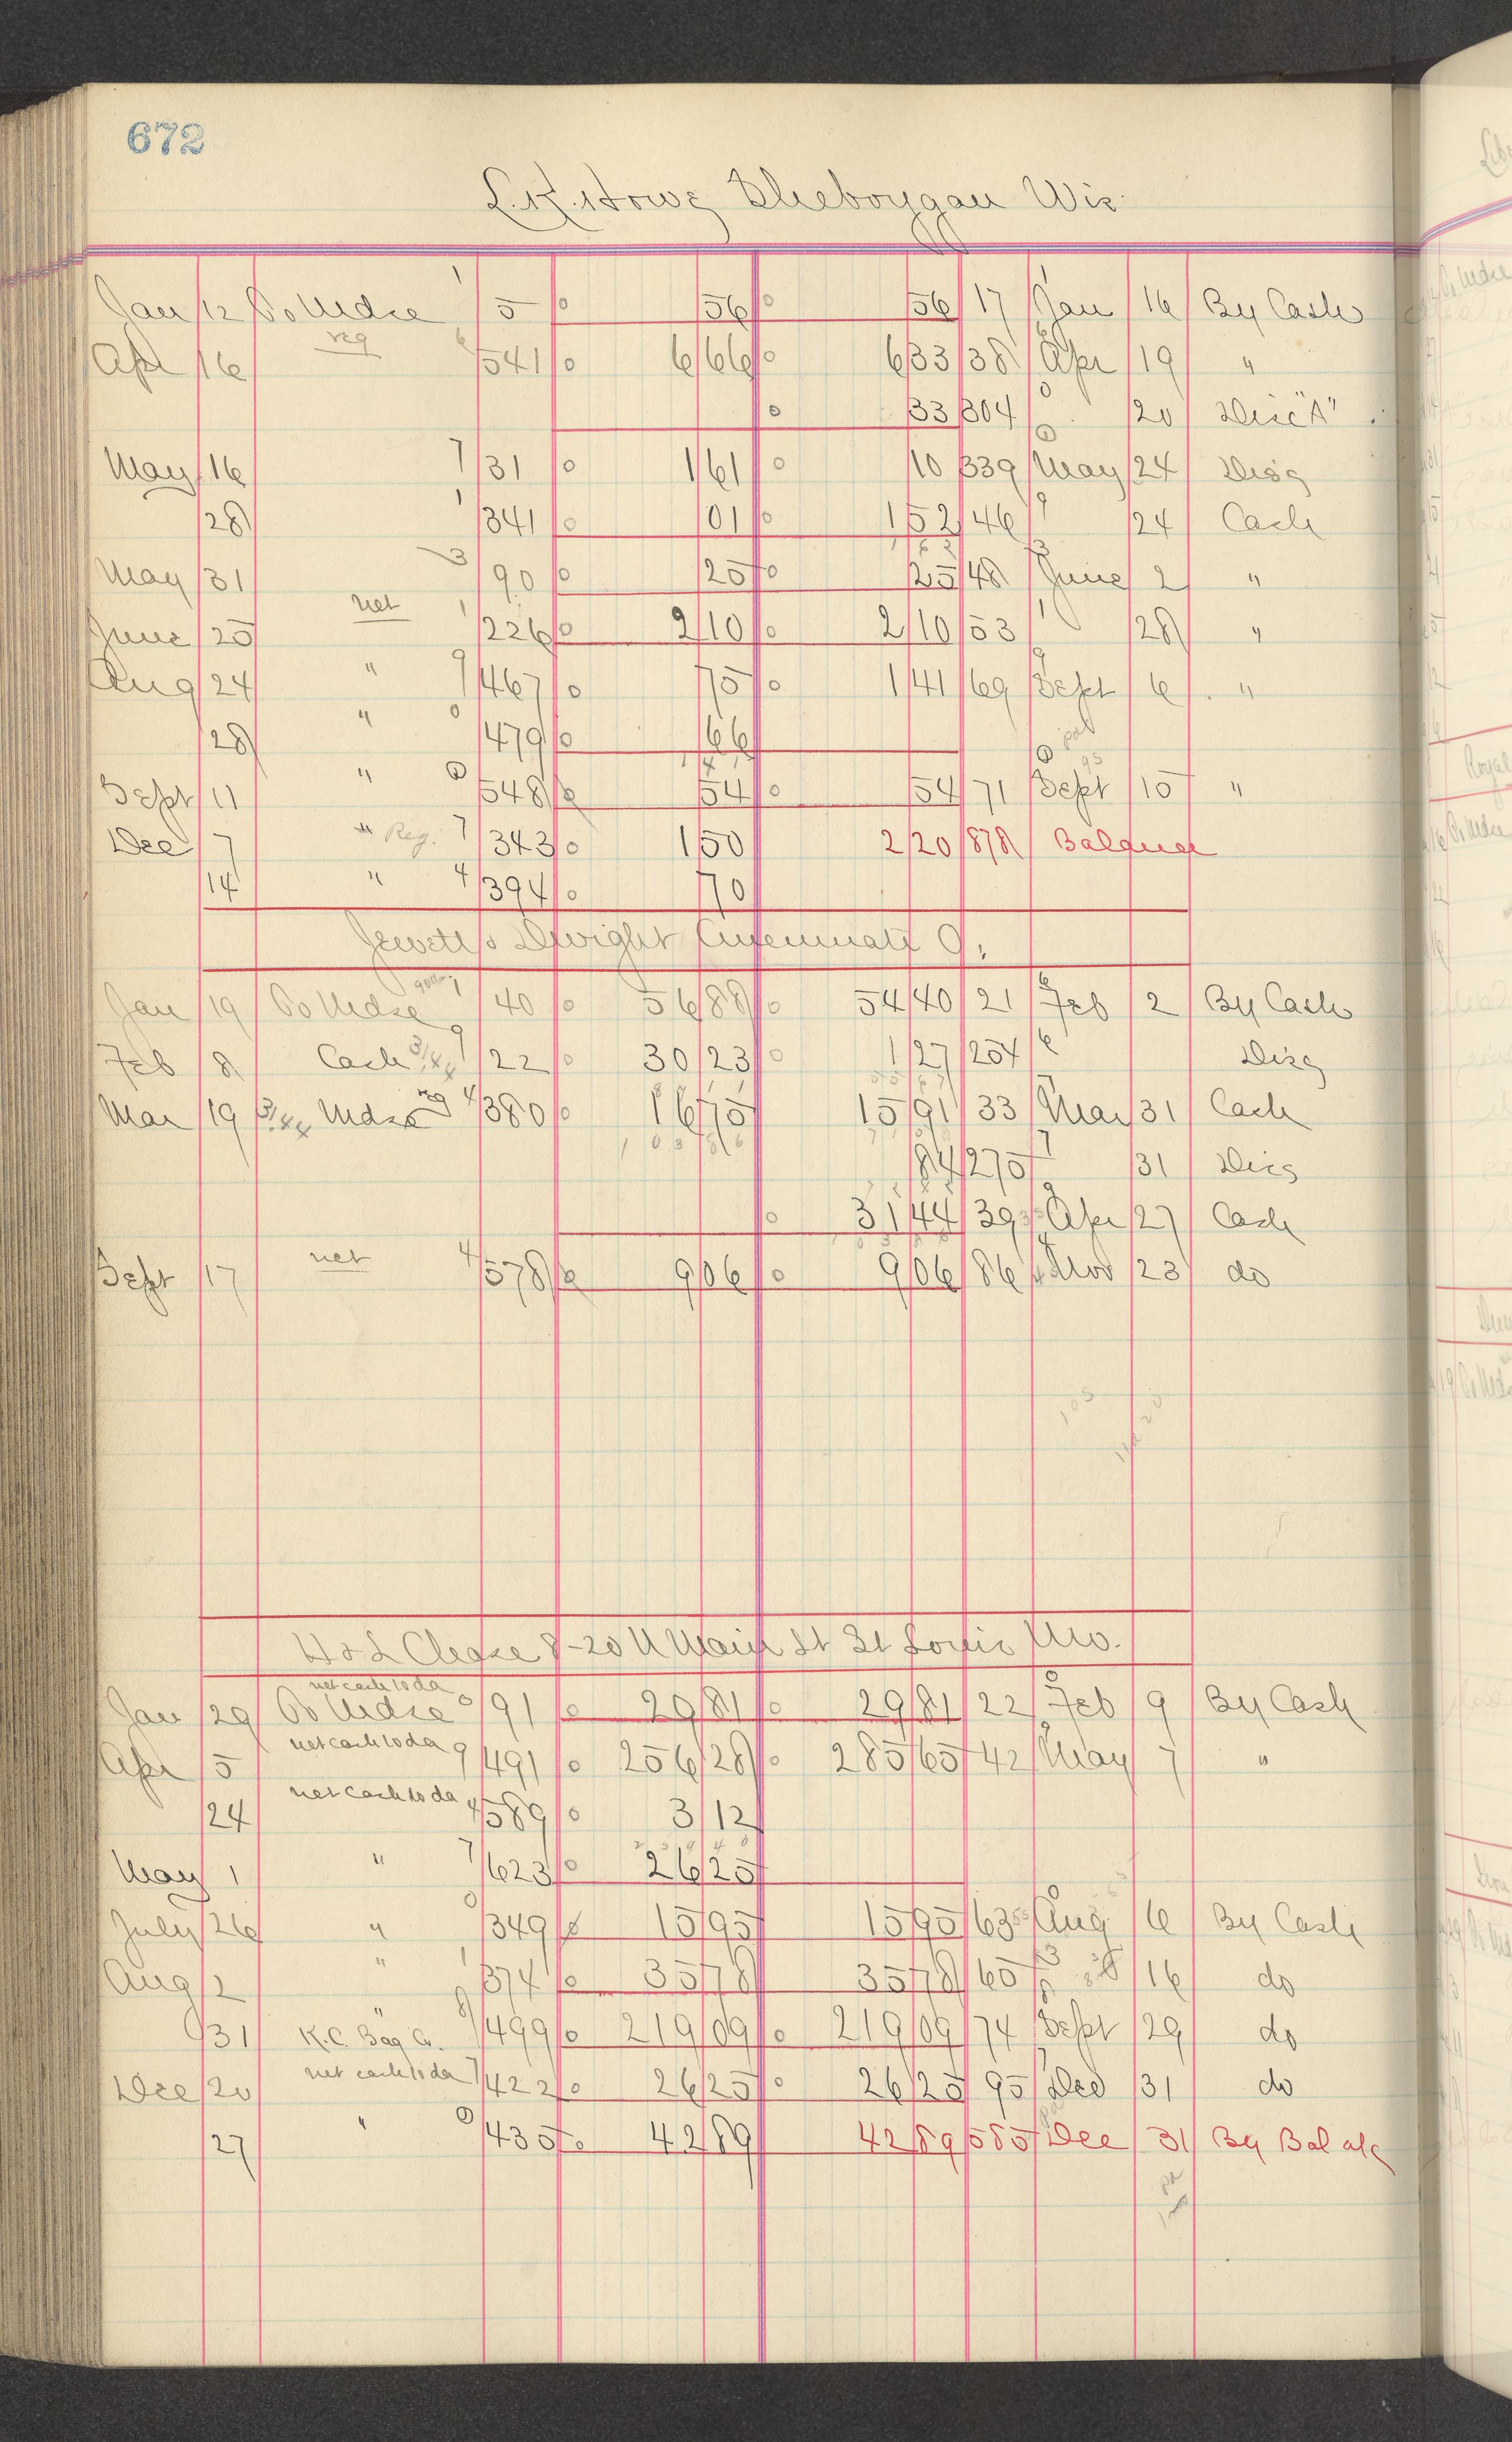 672
L. K. Howe Sheboygan Wis.
Jan 12 To Mdse 5 56 56 17 Jan 16 By Cash
Apr 16 reg 541 6 66 6 33 38 Apr 19 "
33 304 20 Disc "A"
May 16 31 1 61 10 339 May 24 Disc
28 341 01 1 52 46 24 Cash
May 31 90 25 25 48 June 2 "
June 25 net 226 2 10 2 10 53 28 "
Aug 24 " 467 75 1 41 69 Sept 6 "
28 " 479 66
Sept 11 " 548 54 54 71 Sept 15 "
Dec 7 " Reg. 343 1 50 2 20 878 Balance
14 " 394 70
Dwight Cincinnati O.
Jan 19 To Mdse 40 56 88 54 40 21 Feb 2 By Cash
Feb 8 Cash 22 30 23 1 27 254 Disc
Mar 19 Mdse reg 380 16 75 15 91 33 Mar 31 Cash
84 275 31 Disc
31 44 39 Apr 27 Cash
Sept 17 net 578 9 06 9 06 86 Nov 23 do
H & L Chase 8-20 N Main St St Louis Mo.
Jan 29 net cash 10 da To Mdse 91 29 81 29 81 22 Feb 9 By Cash
Apr 5 net cash 10 da 491 256 28 285 65 42 May 7 "
24 net cash 10 da 589 3 12
May 1 " 623 26 25
July 26 " 349 15 95 15 95 63 Aug 6 By Cash
Aug 2 " 374 35 78 35 78 65 16 do
31 " K.C. Bag Co. 499 219 09 219 09 74 Sept 29 do
Dec 20 net cash 10 da 422 26 25 26 25 95 Dec 31 do
27 " 435 42 89 42 89 585 Dec 31 By Bal a/c